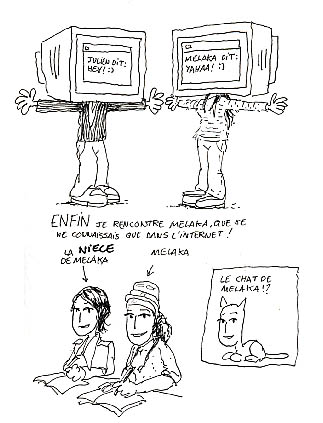 JULIEN DIT:
HEY! :)
MELAKA DIT:
YAHAA! :)
ENFIN JE RENCONTRE MELAKA, QUE JE
NE CONNAISSAIS QUE DANS L'INTERNET!
LA NIECE
DE MELAKA
MELAKA
LE CHAT DE
MELAKA!?